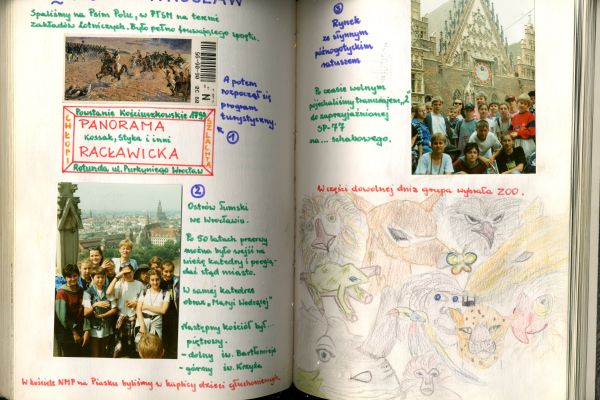 WROCŁAW
Spaliśmy na Psim Polu, w PTSM na terenie
zakładów lotniczych. Było pełno fruwającego sprzętu.
A potem
rozpoczął się
program
turystyczny.
1
Powstanie Kościuszkowskie 1794
CHŁOPI
PANORAMA
Kossak, Styka i inni
RACŁAWICKA
Rotunda ul. Purkyniego Wrocław
2
Ostrów Tumski
we Wrocławiu.
Po 50 latach przerwy
można było wejść na
wieżę katedry i pooglą-
dać stąd miasto.
W samej katedrze
obraz "Maryi Wodzącej"
Następny kościół był...
piętrowy.
- dolny św. Bartłomieja
- górny św. Krzyża
W kościele NMP na Piasku byliśmy w kaplicy dzieci głuchoniemych
3
Rynek
ze słynnym
późnogotyckim
ratuszem
Po czasie wolnym
pojechaliśmy tramwajem "2"
do zaprzyjaźnionej
SP-77
na... schabowego.
W części dowolnej dnia grupa wybrała ZOO.